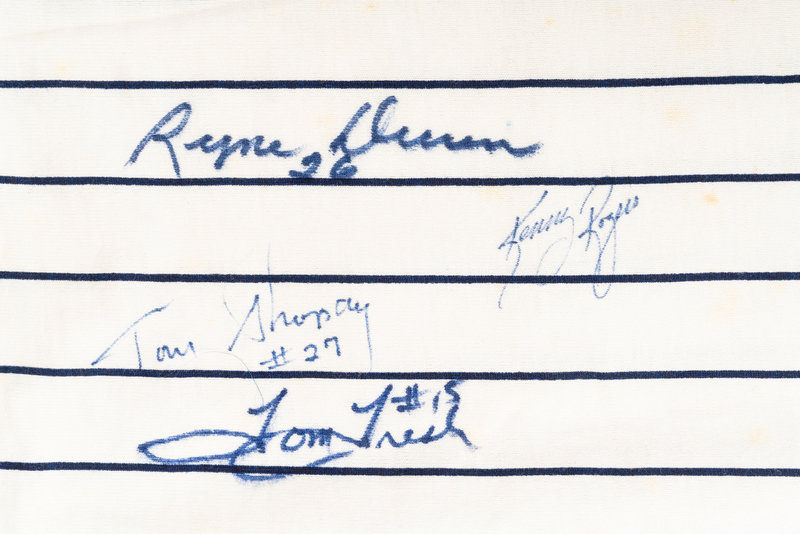 Ryne Duren
26
Kenny Rogers
Tom Shopay
#27
Tom Tresh #15